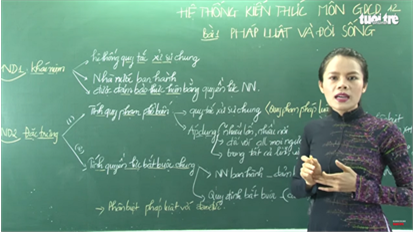 HỆ THỐNG KIẾN THỨC MÔN GDCD 12
tuổi trẻ
Bài 1 PHÁP LUẬT VÀ ĐỜI SỐNG
ND1 khái niệm
hệ thống quy tắc xử sự chung
Nhà nước ban hành
được đảm bảo thực hiện bằng quyền lực NN.
ND2 Đặc trưng
(1)
Tính quy phạm phổ biến
quy tắc xử sự chung (Quy phạm pháp luật
Áp dụng nhiều lần, nhiều nơi
đối với all mọi người
trong tất cả lĩnh
(2)
Tính quyền lực bắt buộc chung
NN ban hành
Quy định bắt buộc
Phân biệt pháp luật với đạo đức